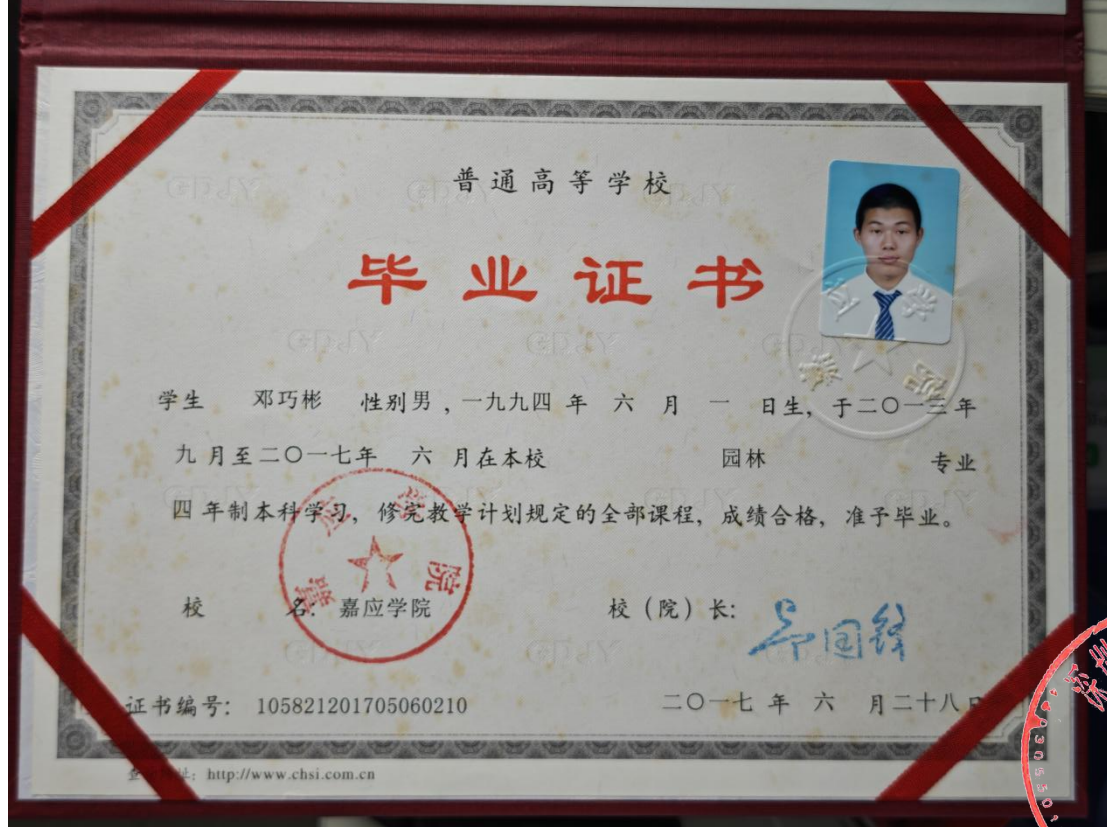 普通高等学校
毕业证书
学生 邓巧彬 性别男，一九九四年 六 月 一 日生，于二〇一三年
九月至二〇一七年 六 月在本校 园林 专业
四年制本科学习，修完教学计划规定的全部课程，成绩合格，准予毕业。
校 名：嘉应学院 校（院）长：
嘉应学院
证书编号：105821201705060210 二〇一七年 六 月二十八日
http://www.chsi.com.cn
GDJY
深圳